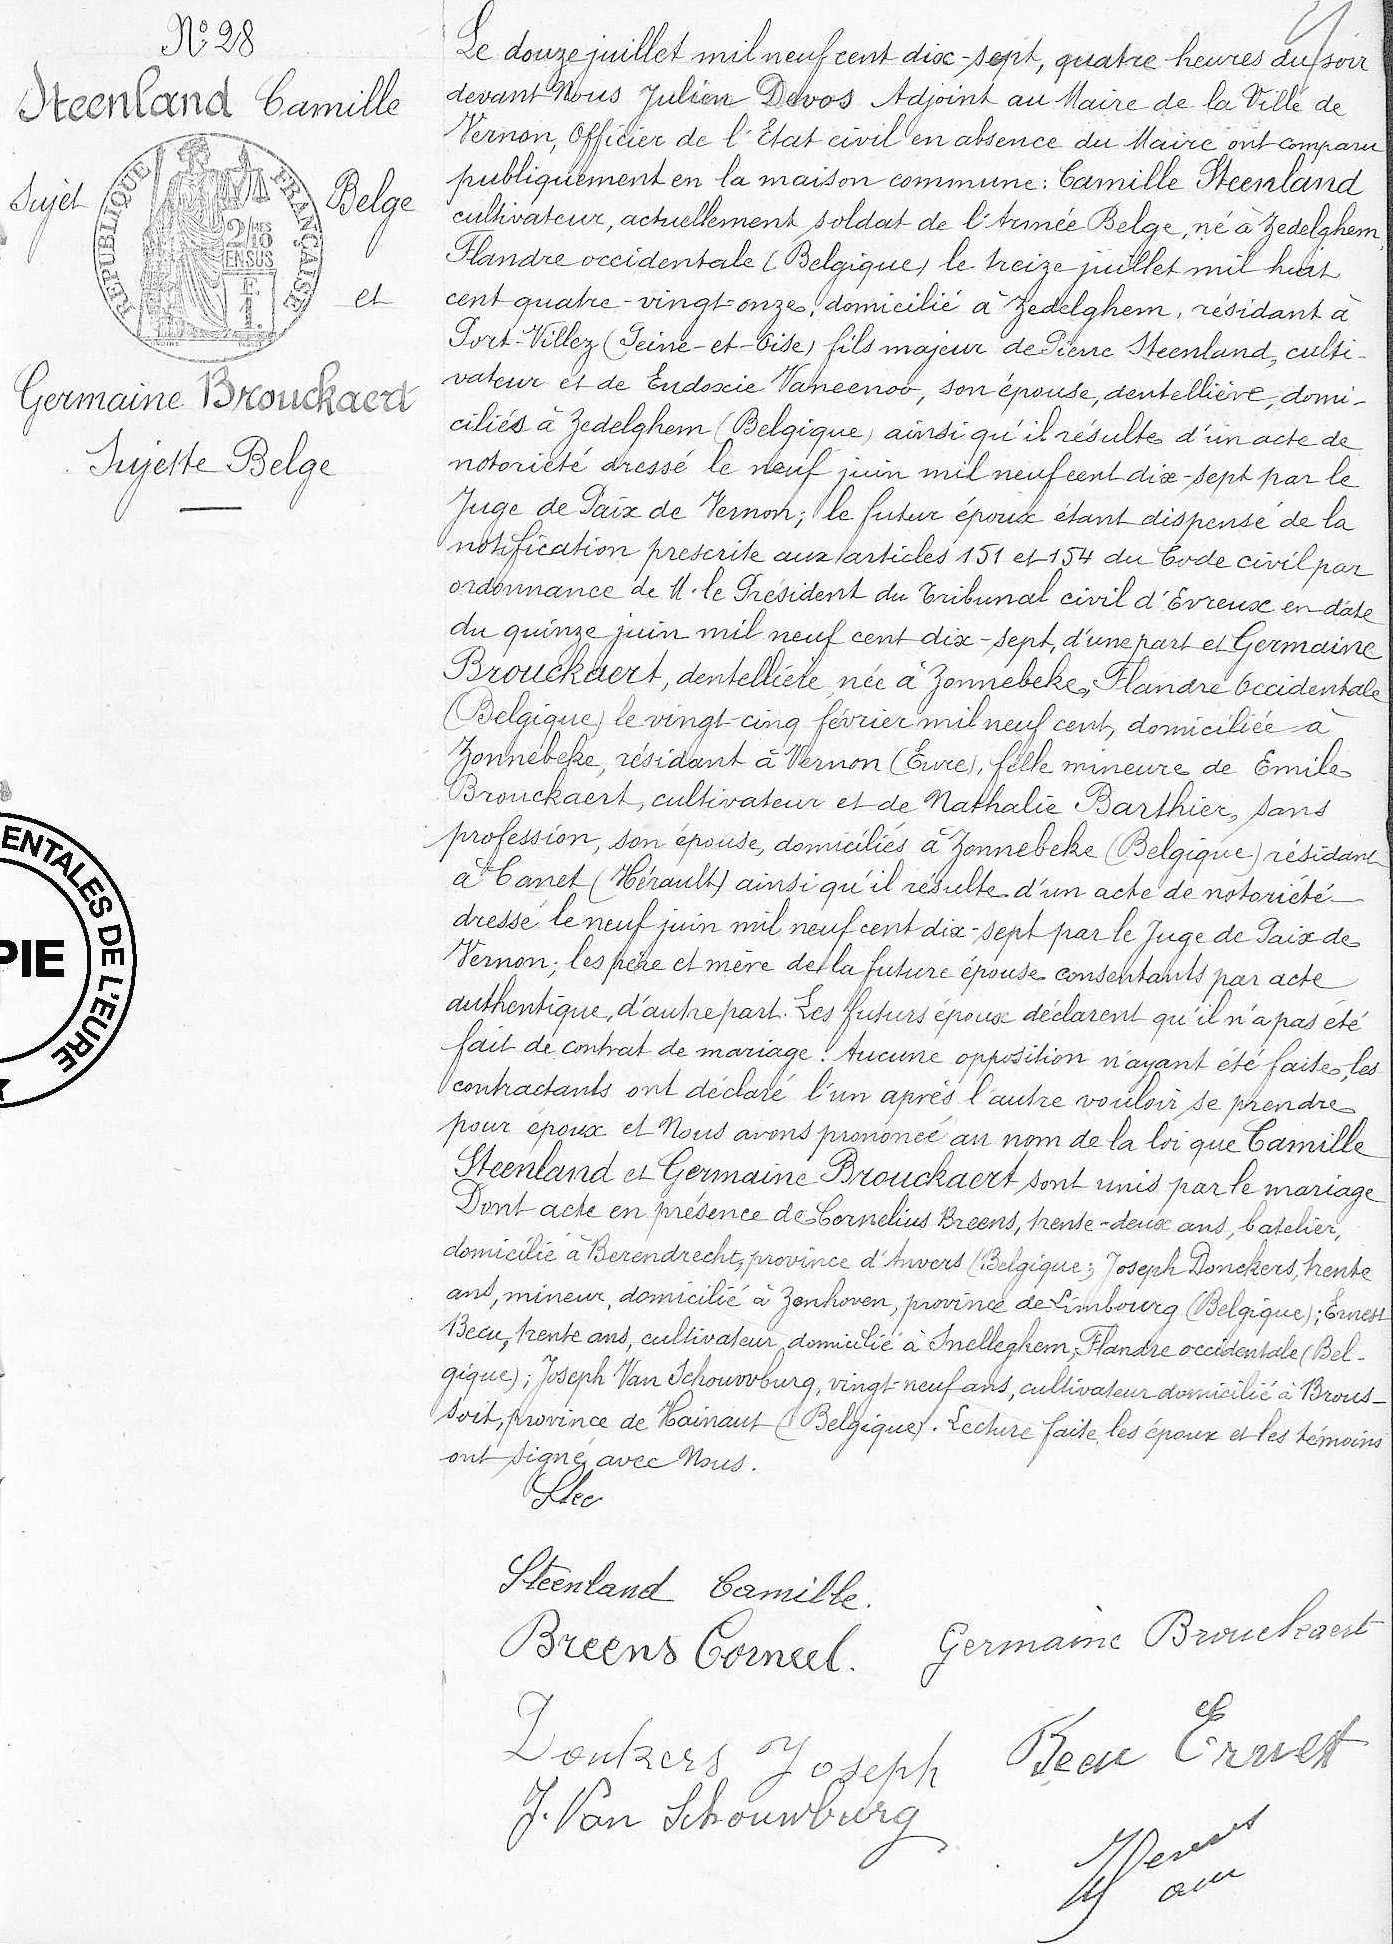 N° 28
Steenland Camille
Sujet Belge
RÉPUBLIQUE FRANÇAISE
2/10 MES
EN SUS
F
1.
et
Germaine Brouckaert
Sujette Belge
ENTALES DE L'EURE
PIE
Le douze juillet mil neuf cent dix-sept, quatre heures du soir
devant Nous Julien Devos Adjoint au Maire de la Ville de
Vernon, Officier de l'Etat civil en absence du Maire ont comparu
publiquement en la maison commune: Camille Steenland
cultivateur, actuellement soldat de l'Armée Belge, né à Zedelghem,
Flandre occidentale (Belgique) le treize juillet mil huit
cent quatre-vingt-onze, domicilié à Zedelghem, résidant à
Port-Villez (Seine-et-Oise) fils majeur de Pierre Steenland, culti-
vateur et de Eudoxie Vaneenoo, son épouse, dentellière, domi-
ciliés à Zedelghem (Belgique) ainsi qu'il résulte d'un acte de
notoriété dressé le neuf juin mil neuf cent dix-sept par le
Juge de Paix de Vernon; le futur époux étant dispensé de la
notification prescrite aux articles 151 et 154 du Code civil par
ordonnance de M. le Président du Tribunal civil d'Evreux en date
du quinze juin mil neuf cent dix-sept, d'une part et Germaine
Brouckaert, dentellière, née à Zonnebeke, Flandre Occidentale
(Belgique) le vingt-cinq février mil neuf cent, domiciliée à
Zonnebeke, résidant à Vernon (Eure), fille mineure de Emile
Brouckaert, cultivateur et de Nathalie Barthier, sans
profession, son épouse, domiciliés à Zonnebeke (Belgique) résidant
à Canet (Hérault) ainsi qu'il résulte d'un acte de notoriété
dressé le neuf juin mil neuf cent dix-sept par le Juge de Paix de
Vernon; les père et mère de la future épouse consentants par acte
authentique, d'autre part. Les futurs époux déclarent qu'il n'a pas été
fait de contrat de mariage. Aucune opposition n'ayant été faite, les
contractants ont déclaré l'un après l'autre vouloir se prendre
pour époux et Nous avons prononcé au nom de la loi que Camille
Steenland et Germaine Brouckaert sont unis par le mariage
Dont acte en présence de Cornelius Breens, trente-deux ans, batelier,
domicilié à Berendrecht, province d'Anvers (Belgique; Joseph Donckers, trente
ans, mineur, domicilié à Zonhoven, province de Limbourg (Belgique); Ernest
Becu, trente ans, cultivateur domicilié à Snelleghem, Flandre occidentale (Bel-
gique); Joseph Van Schouwburg, vingt-neuf ans, cultivateur domicilié à Brous-
soit, province de Hainaut (Belgique). Lecture faite, les époux et les témoins
ont signé avec Nous.
Stee
Steenland Camille.
Breens Corneel. Germaine Brouckaert
Donkers Joseph Becu Ernest
J. Van Schouwburg